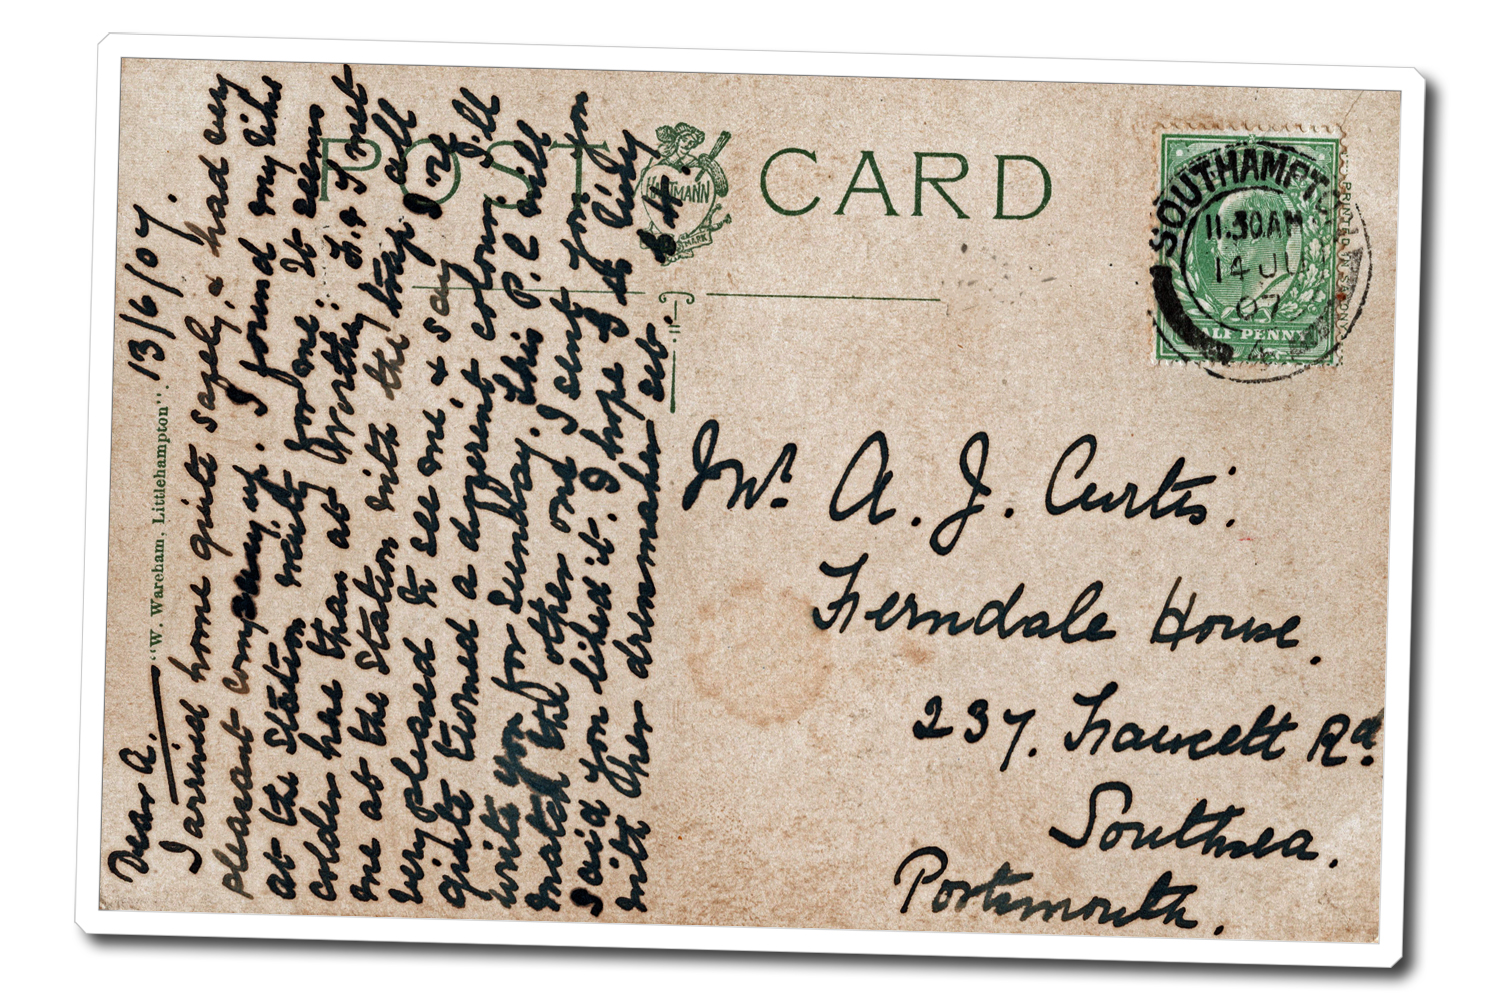 POST CARD
HARTMANN
TRADE MARK
PRINTED IN SAXONY
SOUTHAMPTO
11.30AM
14 JU
07
4
HALF PENNY
"W. Wareham, Littlehampton".
13/6/07.
Dear A.
I arrived home quite safely, & had very
pleasant company up. I found my bike
at the station waiting for me. It seems
colder here than at Worthing. L. & I met
me at the station with the trap. all
very pleased to see me, & say I've
quite turned a different colour. I'll
write you for Sunday. This P.C will
match the other one I sent you you
said you liked it. I hope to be busy
with her dressmaker etc.
Mr. A. J. Curtis.
Ferndale House.
237. Fawcett Rd.
Southsea.
Portsmouth.